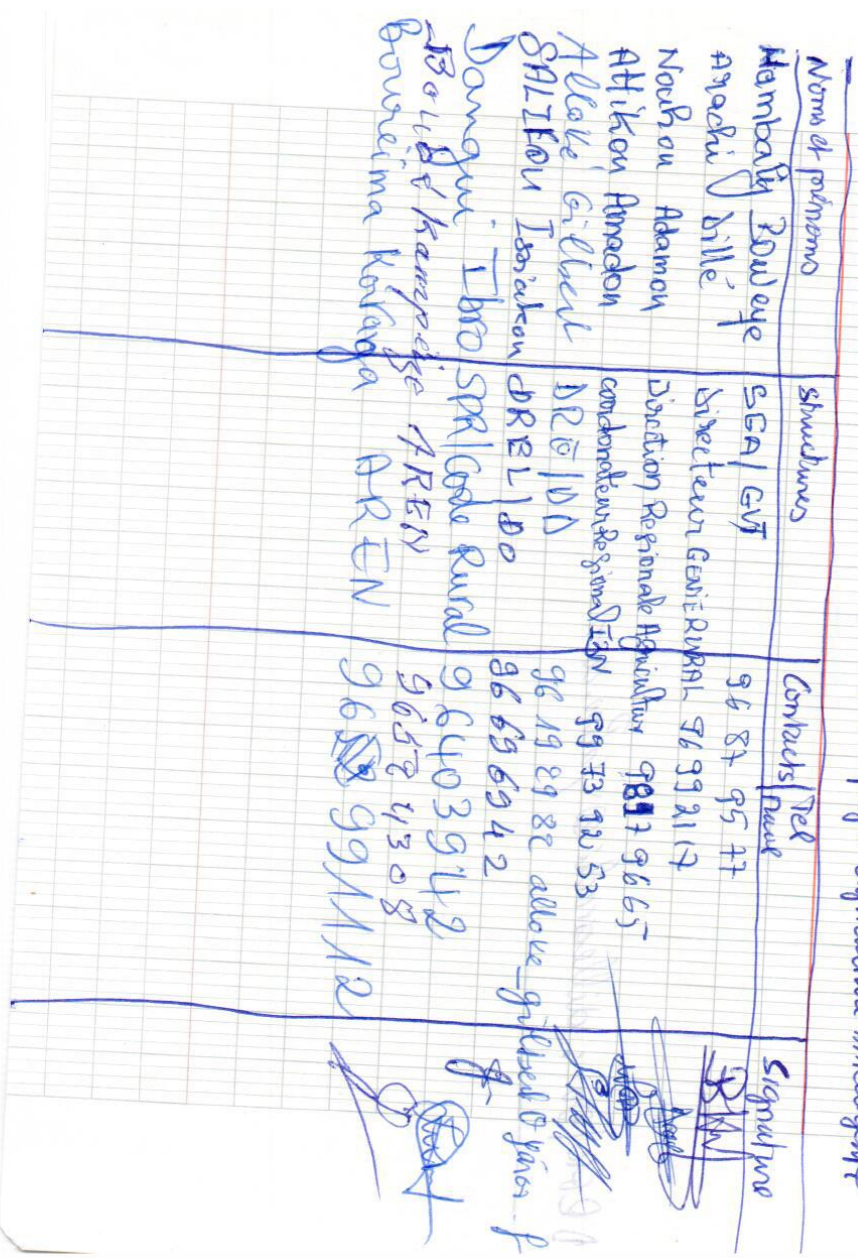 Noms et prénoms structures Contacts/Tel Signature
Hambally Boweye SGA/GVT 96 87 95 77
Arachi Dillé Directeur GENIE RURAL 96 99 21 17
Nouhou Adamou Direction Regionale Agriculture 96 65
Attikou Amadou coordonateur Regional I3N 99 73 92 53
Allové Gilbert DRE/DO 96 19 89 82
SALIFOU Issiakou DREL/DO 96 69 69 42
Dangui Ibro SPR/Code Rural 96403942
Kampeizé AREN 96584308
Boureima Karanga AREN 96 991112